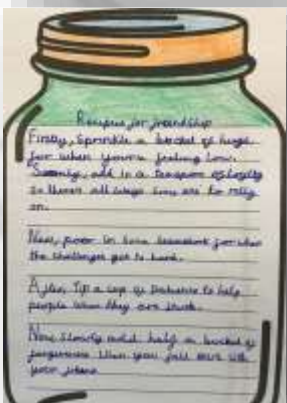 Recipe for friendship
Firstly, Sprinkle a bucket of hugs
for when you're feeling low.
Secondly, add in a teaspoon of loyalty
so theres all ways one to rely
on.
Next, poor in some teamwork for when
the challenges get to hard.
After, Tip a cup of Patience to help
people when they are stuck.
Now Slowly add half a bucket of
forgiveness when you fall out with
your